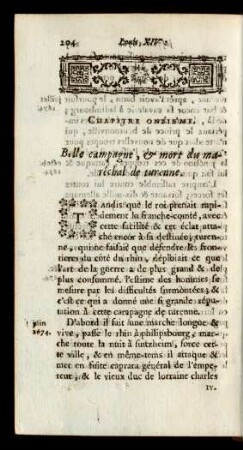 204 Louis XIV.
CHAPITRE ONZIEME.
Belle campagne, & mort du ma-
réchal de turenne.
Tandis que le roi prenait rapi-
dement la franche-conté, avec
cette facilité & cet éclat atta-
ché encor à sa destinée; turen-
ne, qui ne faisait que défendre les fron-
tieres du côté du rhin, déploiait ce que
l'art de la guerre a de plus grand & de
plus consommé. l'estime des hommes se
mesure par les difficultés surmontées; &
c'est ce qui a donné une si grande répu-
tation à cette campagne de turenne.
juin D'abord il fait une marche longue &
1674. vive, passe le rhin à philipsbourg, mar-
che toute la nuit à sintzheim, force cet-
te ville, & en même-tems il attaque &
met en fuite caprara général de l'empe-
reur, & le vieux duc de lorraine charles
IV.